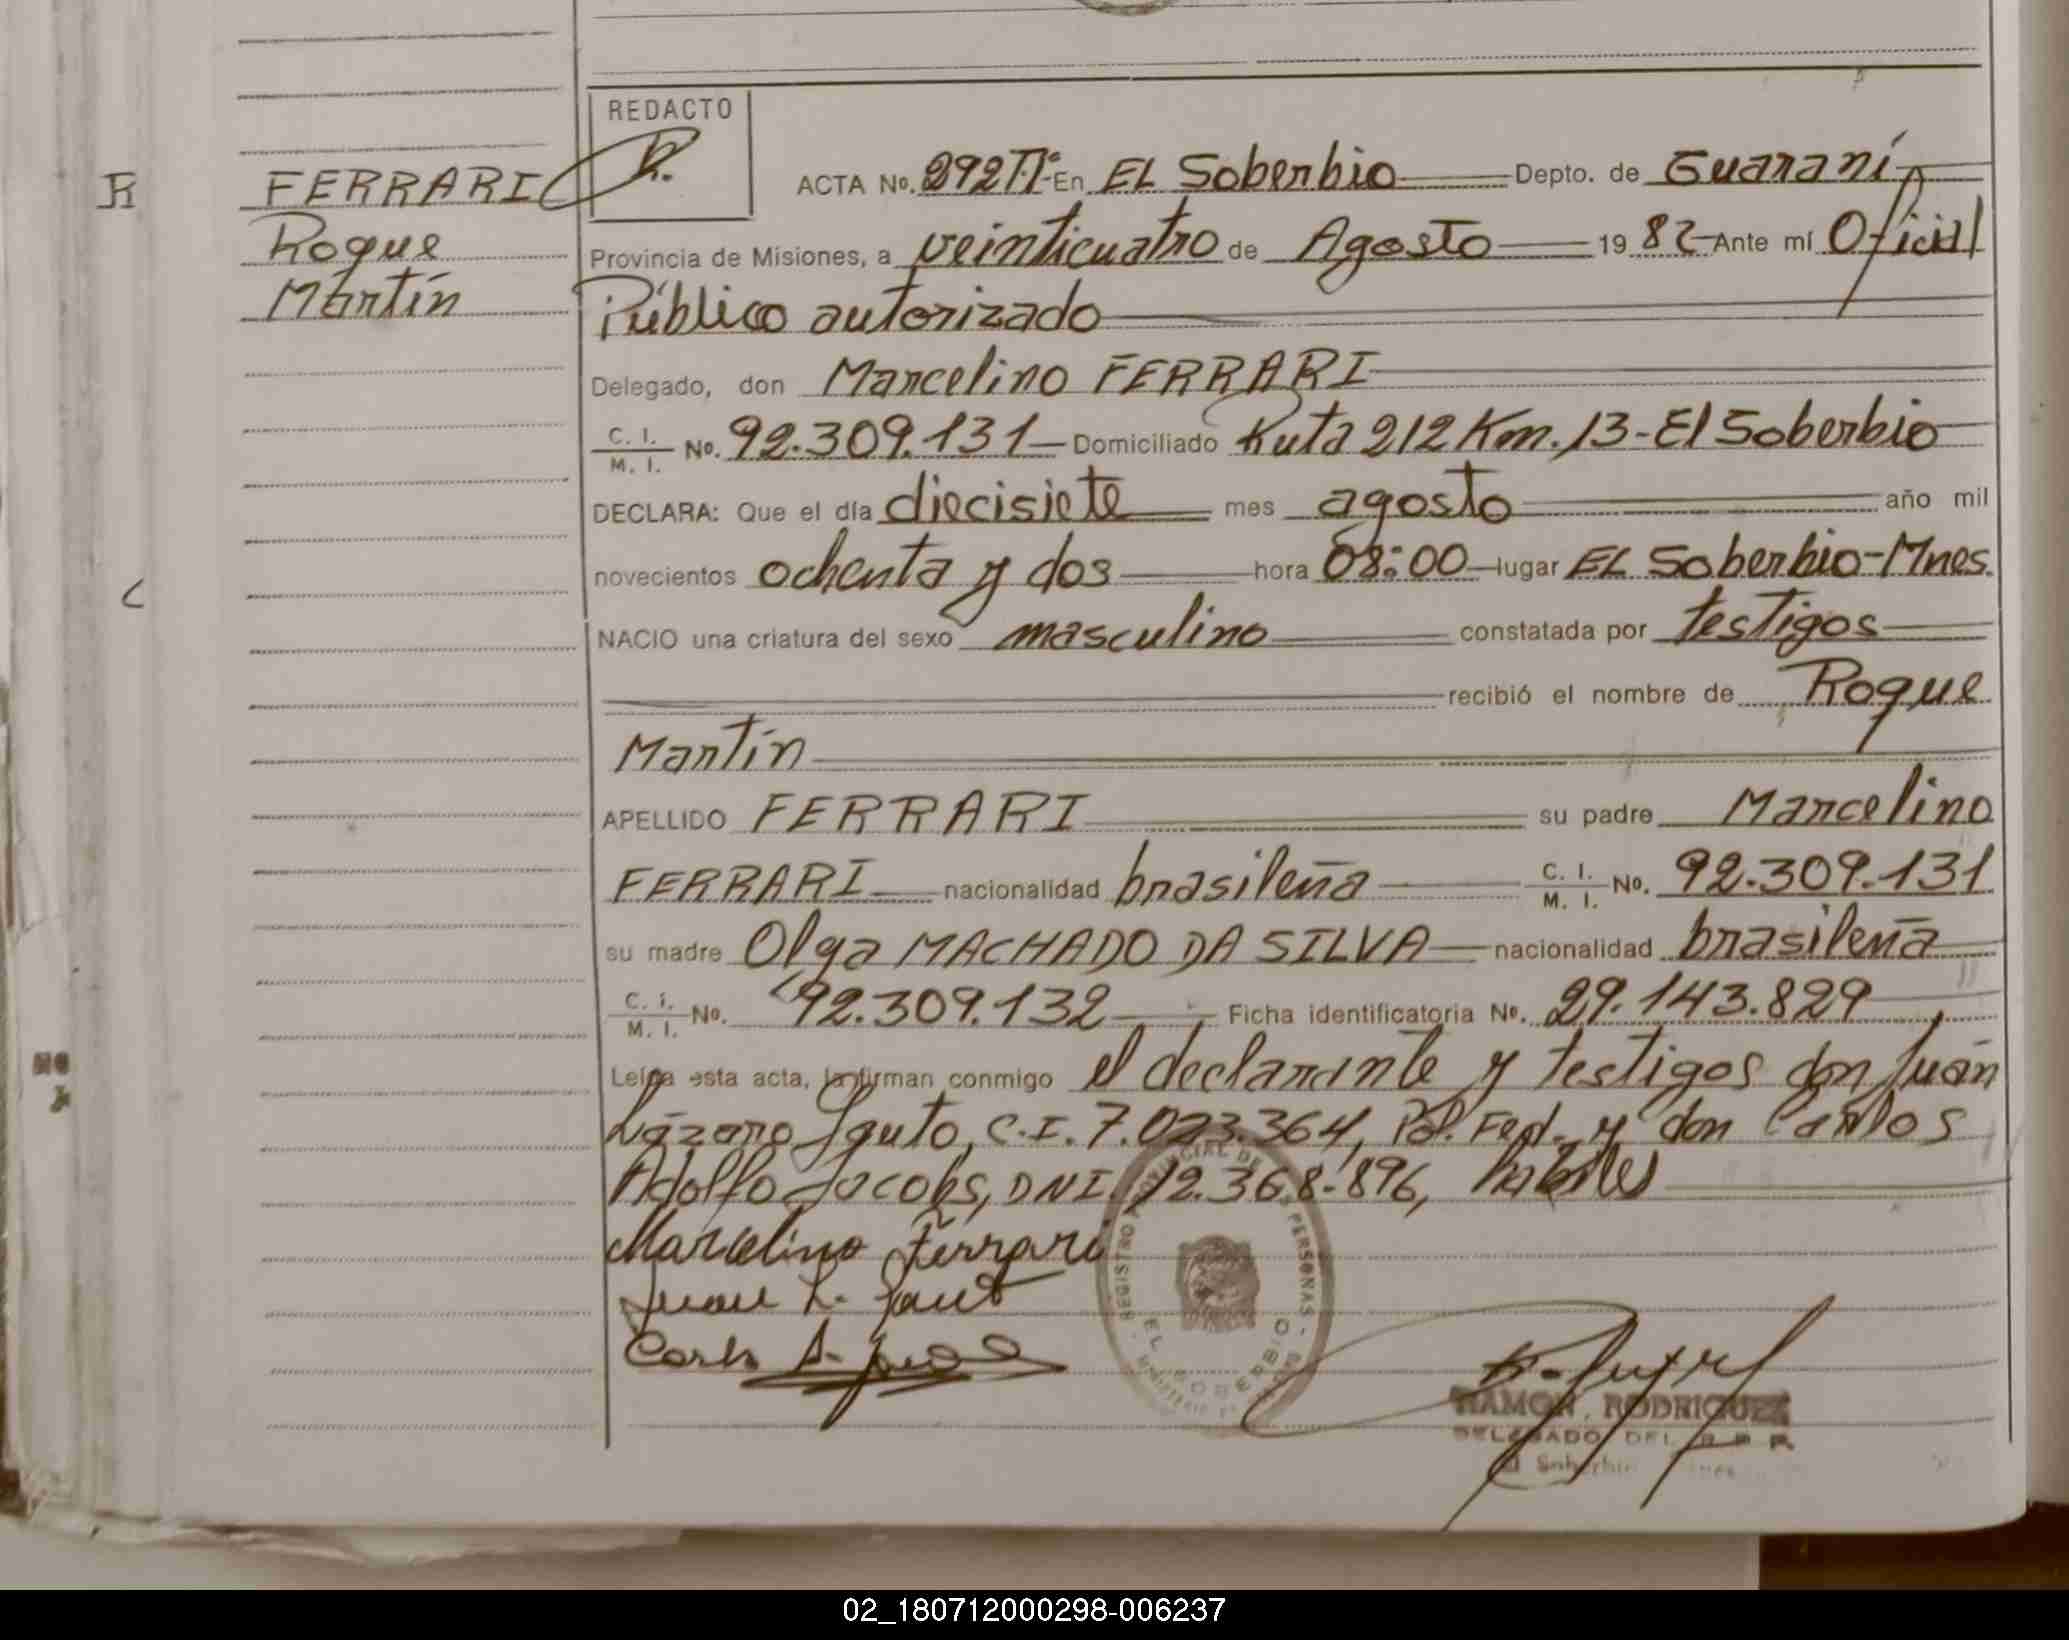 REDACTO
R
FERRARI
Roque
Martín
ACTA No. 292 Tº I En EL Soberbio Depto. de Guaraní
Provincia de Misiones, a veinticuatro de Agosto 1982 Ante mí Oficial
Público autorizado
Delegado, don Marcelino FERRARI
C. I. / M. I. No. 92.309.131 Domiciliado Ruta 212 Km. 13-El Soberbio
DECLARA: Que el día diecisiete mes agosto año mil
novecientos ochenta y dos hora 08:00 lugar EL Soberbio-Mnes.
NACIO una criatura del sexo masculino constatada por testigos
recibió el nombre de Roque
Martín
APELLIDO FERRARI su padre Marcelino
FERRARI nacionalidad brasileña C. I. / M. I. No. 92.309.131
su madre Olga MACHADO DA SILVA nacionalidad brasileña
C. I. / M. I. No. 92.309.132 Ficha identificatoria No. 29.143.829
Leída esta acta, la firman conmigo el declarante y testigos don Juan
Lázaro Sauto, C.I. 7.023.364, Pol. Fed. y don Carlos
Adolfo Jacobs, DNI. 12.368.896, hábiles
Marcelino Ferrari
Juan L. Saut
Carlos A. Jacobs
REGISTRO PROVINCIAL DE LAS PERSONAS
EL SOBERBIO
RAMON RODRIGUEZ
DELEGADO DEL R. P. P.
El Soberbio
02_180712000298-006237